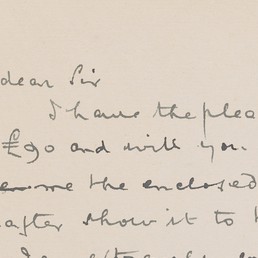 dear Sir
I have the plea
£90 and will you
me the enclosed
after show it to